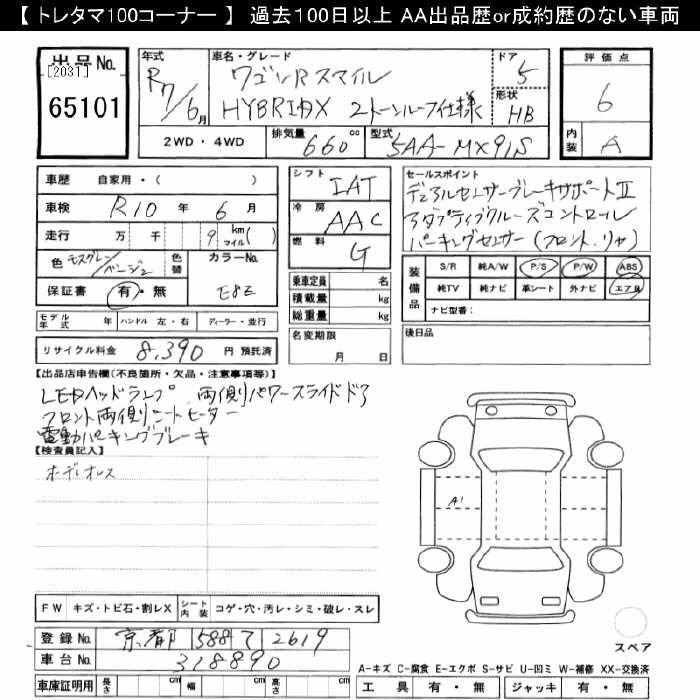 【 トレタマ100コーナー 】 過去100日以上 AA出品歴or成約歴のない車両
出品No. [2031] 65101
年式 R7/6月
車名・グレード ワゴンRスマイル
HYBRIDX 2トーンルーフ仕様
ドア 5
形状 HB
評価点 6
内装 A
2WD ・ 4WD 排気量 660 cc 型式 5AA-MX91S
車歴 自家用・( )
車検 R10 年 6 月
走行 万 千 9 km マイル ( )
色 モスグレー/ベージュ 色替 カラーNo. E8E
保証書 有・無
シフト IAT
冷房 AAC
燃料 G
乗車定員 名
積載量 kg
総重量 kg
セールスポイント
デュアルセンサーブレーキサポートⅡ
アダプティブクルーズコントロール
パーキングセンサー (フロント.リヤ)
装備品 S/R 純A/W P/S P/W ABS
純TV 純ナビ 革シート 外ナビ エアB
ナビ型番:
モデル年式 年 ハンドル 左・右 ディーラー・並行
名変期限 月 日
後日品
リサイクル料金 8,390 円 預託済
【出品店申告欄(不良箇所・欠品・注意事項等)】
LEDヘッドランプ 両側パワースライドドア
フロント両側シートヒーター
電動パーキングブレーキ
【検査員記入】
ホーディオレス
A1
FW キズ・トビ石・割レX シート内装 コゲ・穴・汚レ・シミ・破レ・スレ
登録No. 京都 588 て 2619
車台No. 318890
スペア
A-キズ C-腐食 E-エクボ S-サビ U-凹ミ W-補修 XX-交換済
車庫証明用 長さ cm 幅 cm 高さ cm 工具 有・無 ジャッキ 有・無